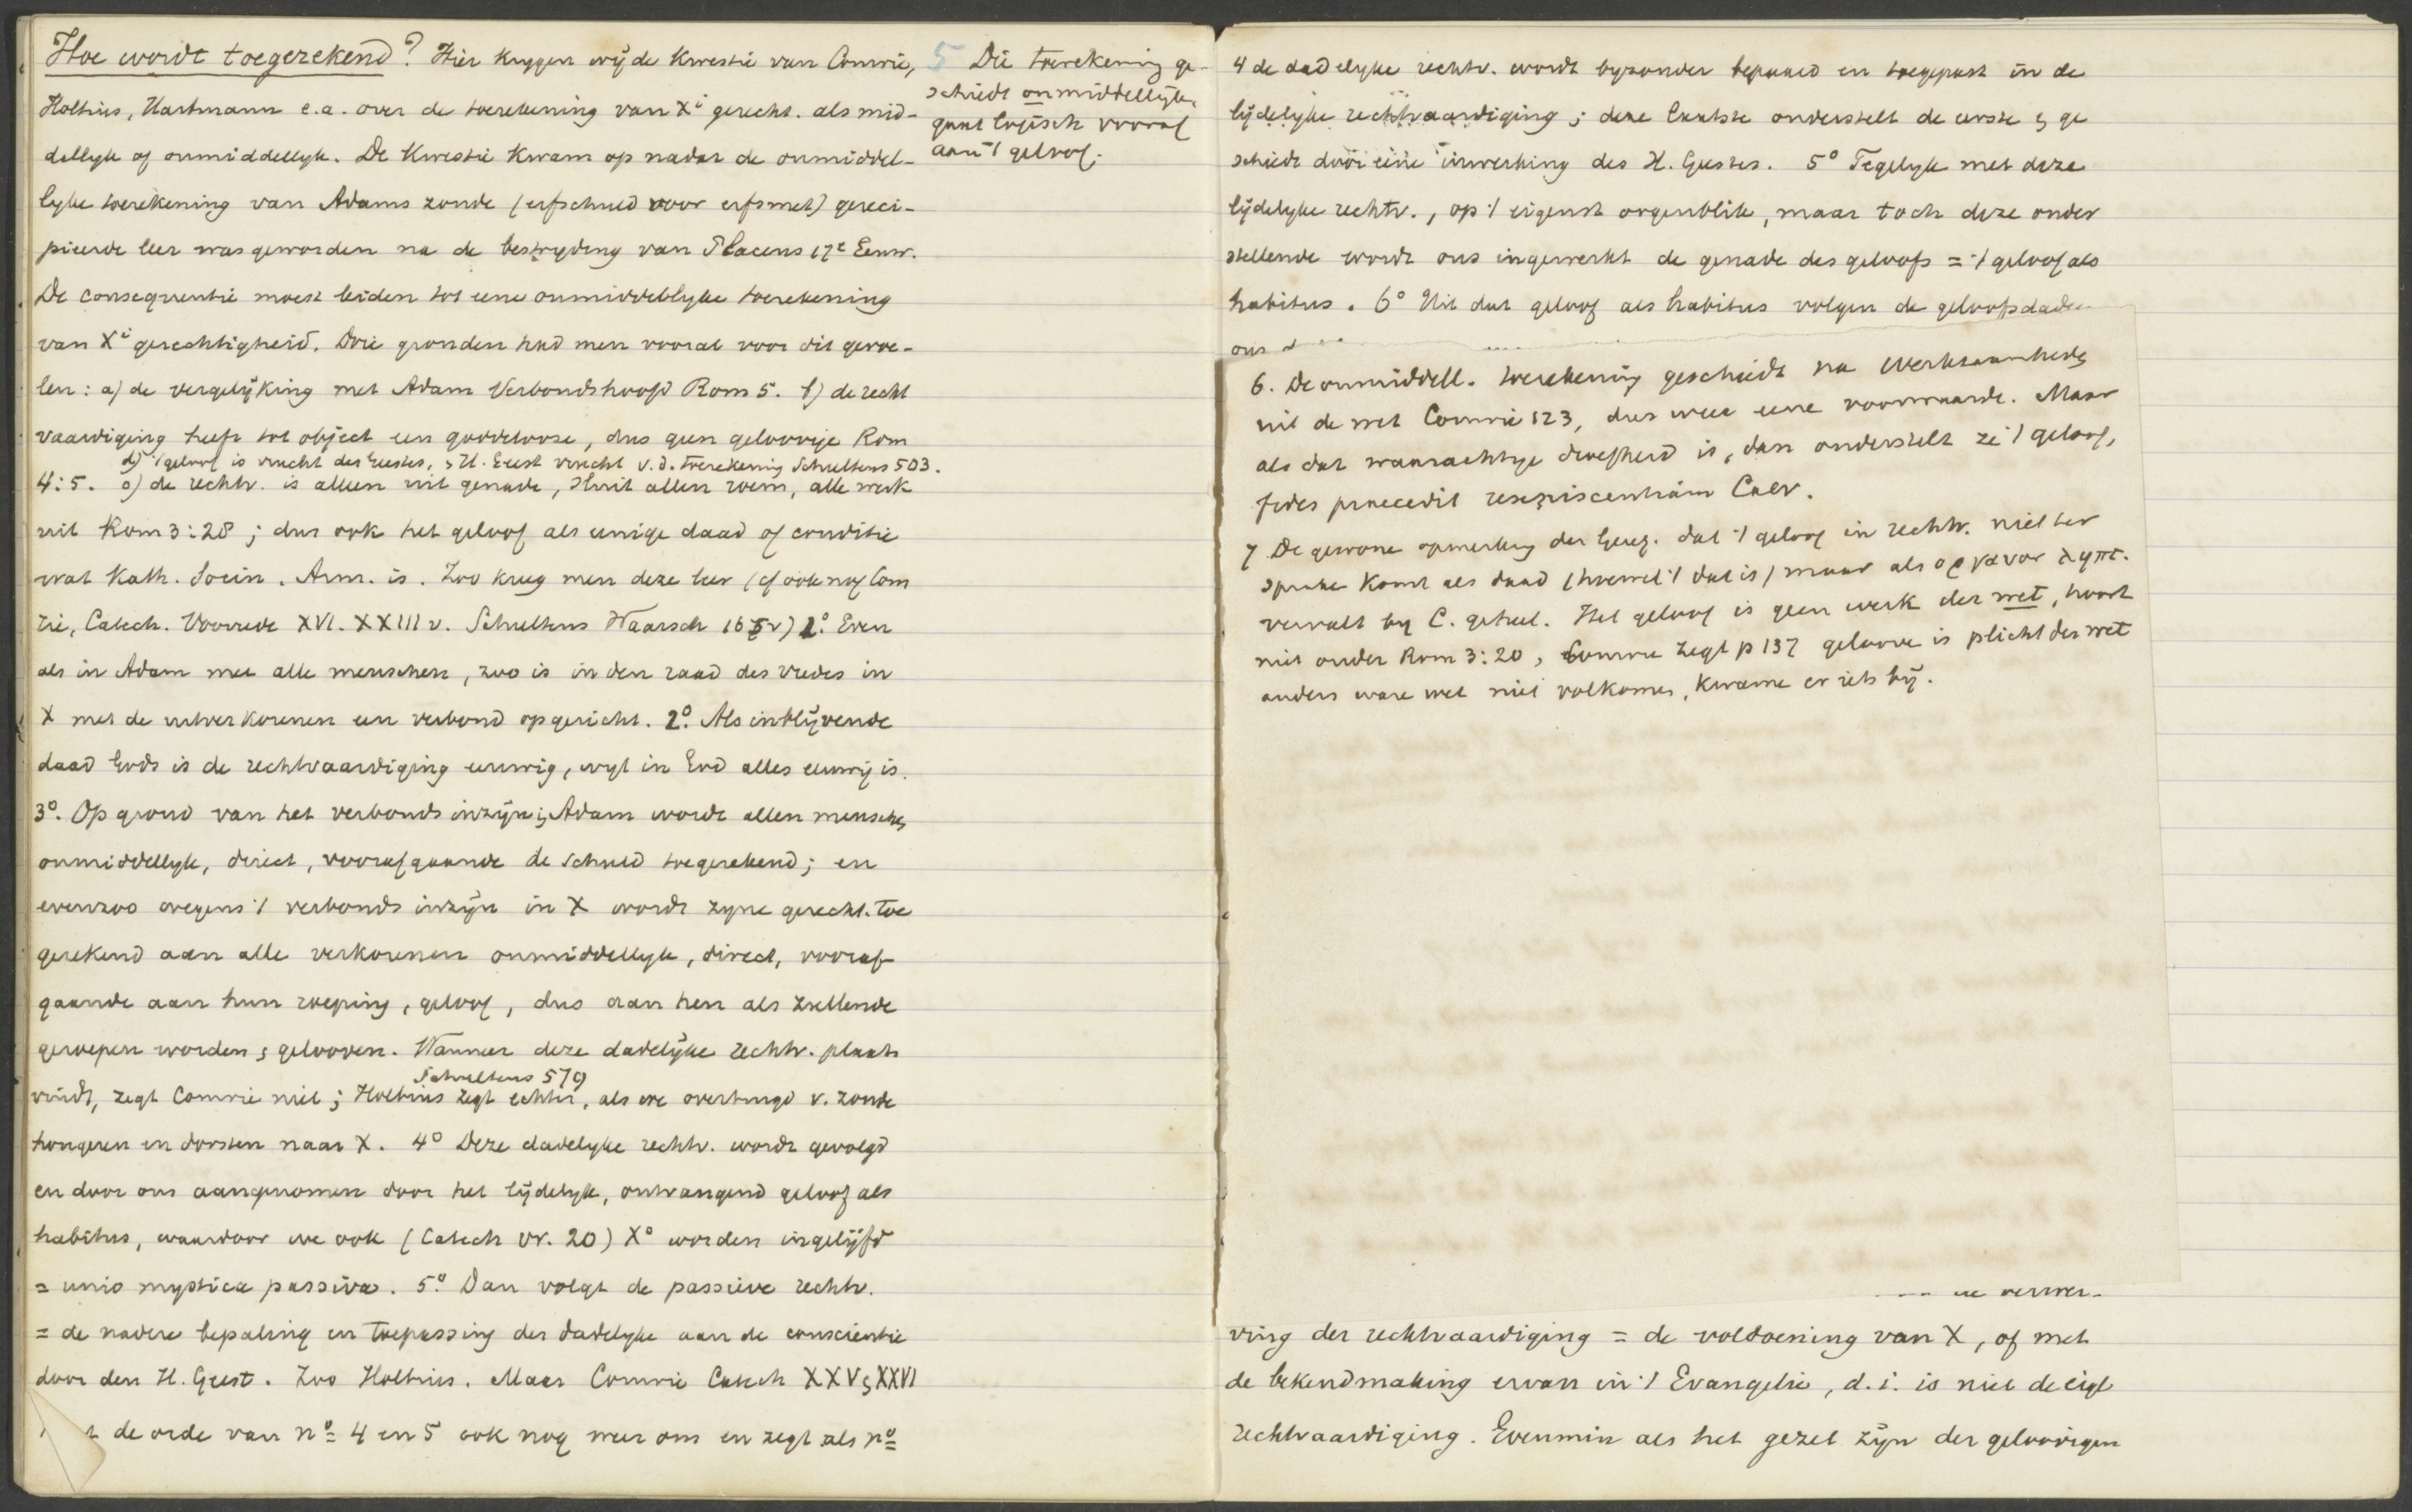 Hoe wordt toegerekend? Hier krygen wij de kwestie van Comrie,
Holtius, Hartmann e.a. over de toerekening van Xi gerecht. als mid-
dellyk of onmiddellyk. De kwestie kwam op nadat de onmiddel-
lyke toerekening van Adams zonde (erfschuld voor erfsmet) gereci-
pieerde leer was geworden na de bestryding van Placeus 17e Eeuw.
De consequentie moest leiden tot eene onmiddellyke toerekening
van Xi gerechtigheid. Drie gronden had men vooral voor dit gevoe-
len: a) de vergelyking met Adam Verbondshoofd Rom 5. b) de recht
vaardiging heeft tot object een goddelooze, dus geen geloovige Rom
d) 't geloof is vrucht des Geestes, & H. Geest vrucht v.d. toerekening Schultens 503.
4:5. c) de rechtv. is alleen uit genade, sluit allen roem, alle werk
uit Rom 3:28; dus ook het geloof als eenige daad of conditie
wat Kath. Socin. Arm. is. Zoo kreeg men deze leer (cf ook nog Com
rie, Catech. Voorrede XVI. XXIII v. Schultens Waarsch 165v) 1o. Even
als in Adam met alle menschen, zoo is in den raad des vredes in
X met de uitverkorenen een verbond opgericht. 2o. Als inblijvende
daad Gods is de rechtvaardiging eeuwig, wyl in God alles eeuwig is.
3o. Op grond van het verbonds inzijn in Adam wordt allen menschen
onmiddellyk, direct, voorafgaande de schuld toegerekend; en
evenzoo wegens 't verbonds inzijn in X wordt zyne gerecht. toe
gerekend aan alle verkorenen onmiddellyk, direct, vooraf-
gaande aan hun roeping, geloof, dus aan hen als zullende
geroepen worden & gelooven. Wanneer deze dadelijke rechtv. plaats
Schultens 579
vindt, zegt Comrie niet; Holtius zegt echter, als we overtuigd v. zonde
hongeren en dorsten naar X. 4o Deze dadelyke rechtv. wordt gevolgd
en door ons aangenomen door het lydelyk, ontvangend geloof als
habitus, waardoor we ook (Catech vr. 20) Xo worden ingelijfd
= unio mystica passiva. 5o. Dan volgt de passieve rechtv.
= de nadere bepaling en toepassing der dadelyke aan de conscientie
door den H. Geest. Zoo Holtius. Maar Comrie Catech XXV & XXVI
de orde van no 4 en 5 ook nog weer om en zegt als no
5 Die toerekening ge-
schiedt onmiddellyk,
gaat logisch vooraf
aan 't geloof.
4 de dadelyke rechtv. wordt byzonder bepaald en toegepast in de
lijdelyke rechtvaardiging; deze laatste onderstelt de eerste & ge
schiedt door eene inwerking des H. Geestes. 5o Tegelyk met deze
lijdelyke rechtv., op 't eigenst oogenblik, maar toch deze onder
stellende wordt ons ingewerkt de genade des geloofs = 't geloof als
habitus. 6o Uit dat geloof als habitus volgen de geloofsdaden
ons
6. De onmiddell. toerekening geschiedt na werkzaamheden
uit de wet Comrie 123, dus weer eene voorwaarde. Maar
als dat waarachtige droefheid is, dan onderstelt ze 't geloof,
fides praecedit resipiscentiam Calv.
7 De gewone opmerking der Geref. dat 't geloof in rechtv. niet ter
sprake komt als daad (hoewel 't dat is) maar als οργανον ληπτ.
vervalt by C. geheel. Het geloof is geen werk der wet, hoort
niet onder Rom 3:20, Comrie zegt p 137 geloove is plicht der wet
anders ware wet niet volkomen, kwame er iets bij.
de verwer-
ving der rechtvaardiging = de voldoening van X, of met
de bekendmaking ervan in 't Evangelie, d.i. is niet de eigl
rechtvaardiging. Evenmin als het gezet zijn der geloovigen